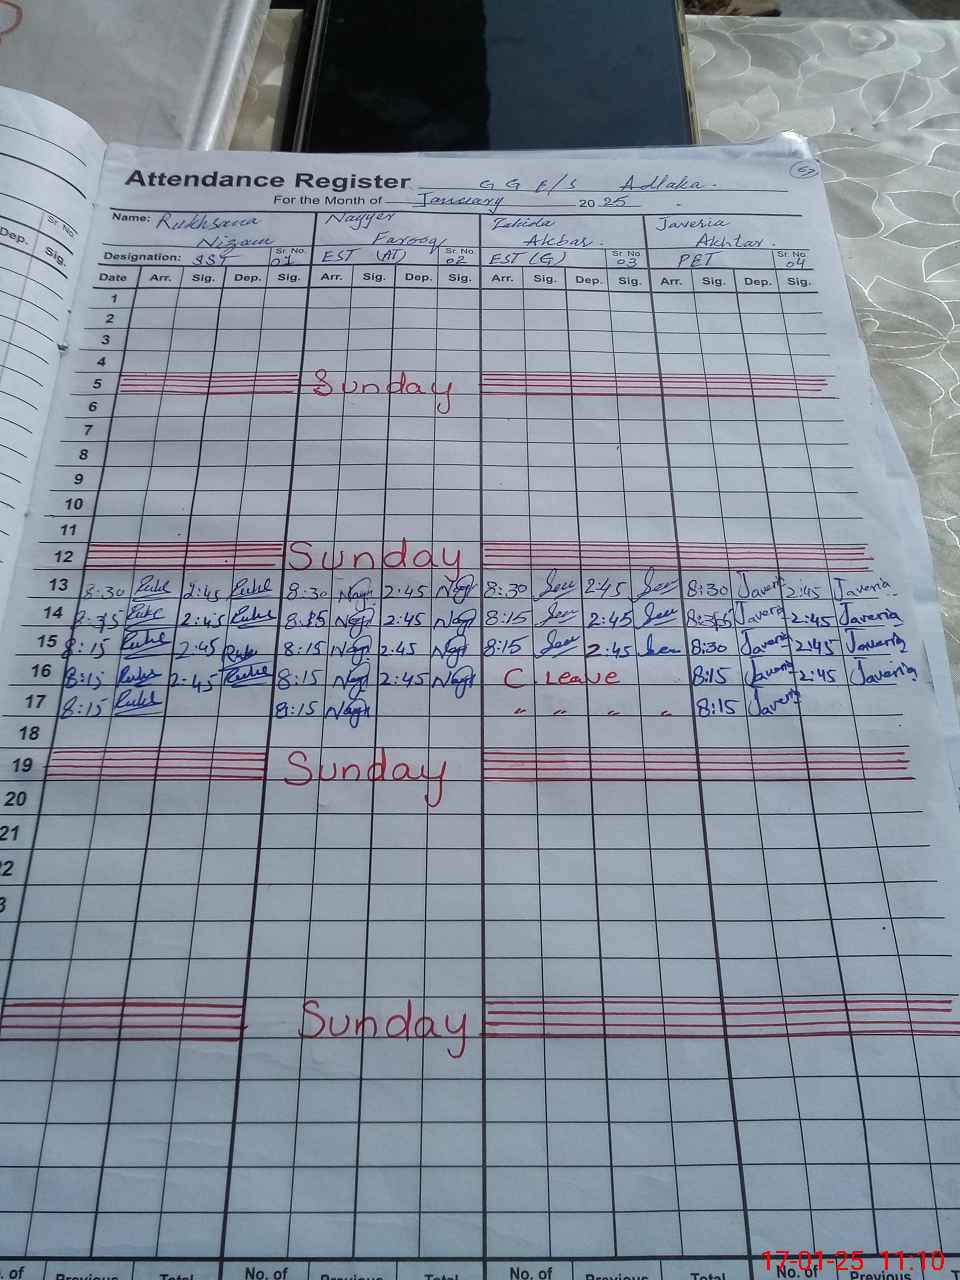 Attendance Register G G E/S Adlaka.
For the Month of January 2025
Name: Rukhsana Nizam Nayyer Farooq Zahida Akbar. Javeria Akhtar.
Designation: SST Sr. No. 01 EST (AT) Sr. No. 02 EST (G) Sr. No. 03 PET Sr. No. 04
Date Arr. Sig. Dep. Sig. Arr. Sig. Dep. Sig. Arr. Sig. Dep. Sig. Arr. Sig. Dep. Sig.
1
2
3
4
5 Sunday
6
7
8
9
10
11
12 Sunday
13 8:30 2:45 8:30 2:45 8:30 2:45 8:30 Javeria 2:45 Javeria
14 2:45 2:45 8:15 2:45 Javeria 2:45 Javeria
15 8:15 2:45 8:15 2:45 8:15 2:45 8:30 Javeria 2:45 Javeria
16 8:15 2:45 8:15 2:45 C. Leave 8:15 Javeria 2:45 Javeria
17 8:15 8:15 " " " " 8:15 Javeria
18
19 Sunday
20
21
22
3
Sunday
. of Previous Total No. of Previous Total No. of Previous Total No. of Previous
Dep. Sr. No.
Sig.
17-01-25 11:10